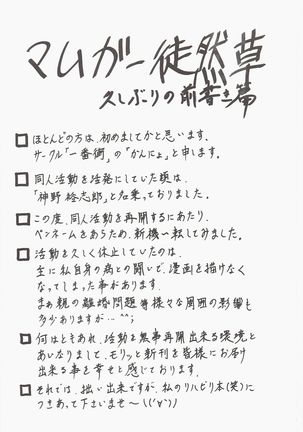 マムガー徒然草
久しぶりの前書き篇
□ほとんどの方は、初めましてかと思います。
サークル「一番槍」の「かんにょ」と申します。
□同人活動を活発にしていた頃は、
「神野 志郎」と名乗っておりました。
□この度、同人活動を再開するにあたり、
ペンネームをあらため、新機一転してみました。
□活動を久しく休止していたのは、
主に私自身の病との闘いで、漫画を描けなく
なってしまった事があります。
まぁ親の離婚問題等様々な周囲の影響も
多少ありますが…^^;
□何はともあれ、活動を無事再開出来る環境と
あいなりまして、モリッと新刊を皆様にお届け
出来る事を幸せと感じております。
□それでは、拙い出来ですが、私のリハビリ本(笑)に
つきあって下さいませ〜\(´∀`)/